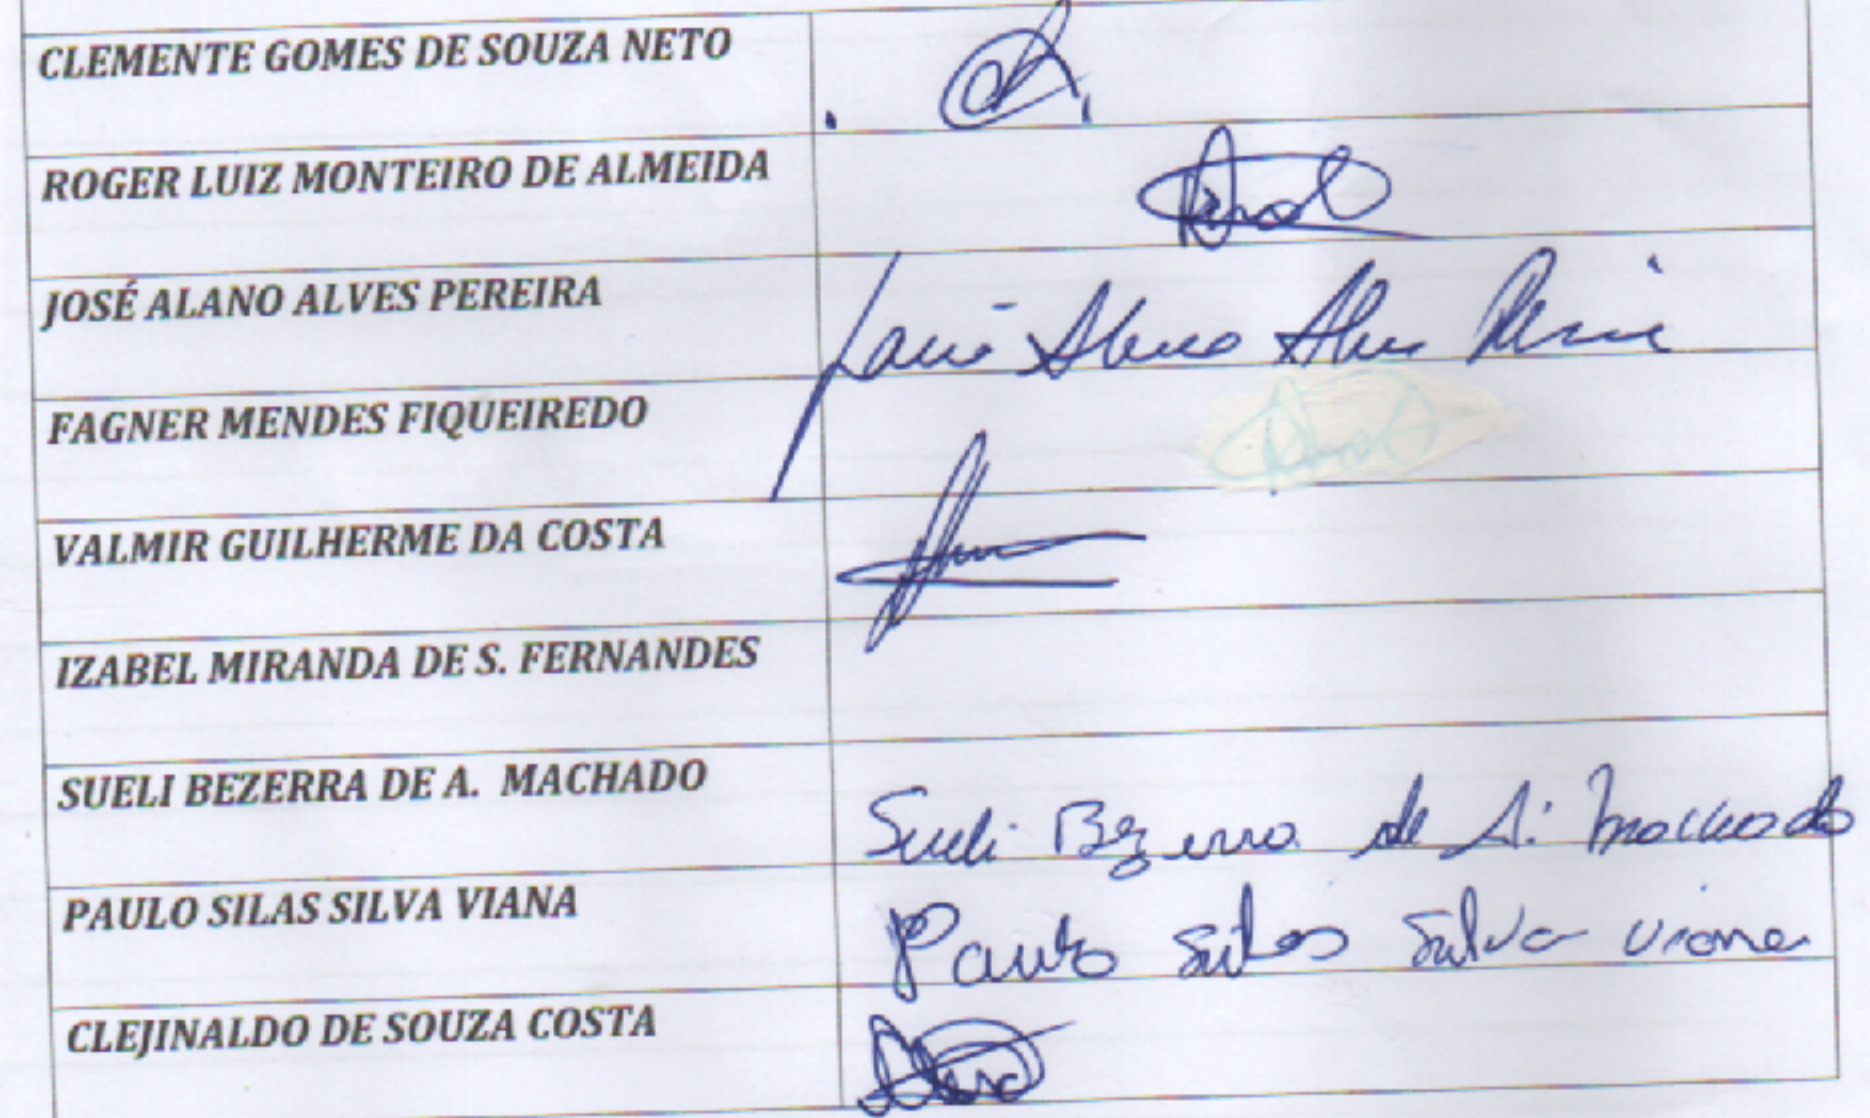 CLEMENTE GOMES DE SOUZA NETO
ROGER LUIZ MONTEIRO DE ALMEIDA
JOSÉ ALANO ALVES PEREIRA
FAGNER MENDES FIQUEIREDO
VALMIR GUILHERME DA COSTA
IZABEL MIRANDA DE S. FERNANDES
SUELI BEZERRA DE A. MACHADO Sueli Bezerra de A. Machado
PAULO SILAS SILVA VIANA Paulo Silas Silva Viana
CLEJINALDO DE SOUZA COSTA